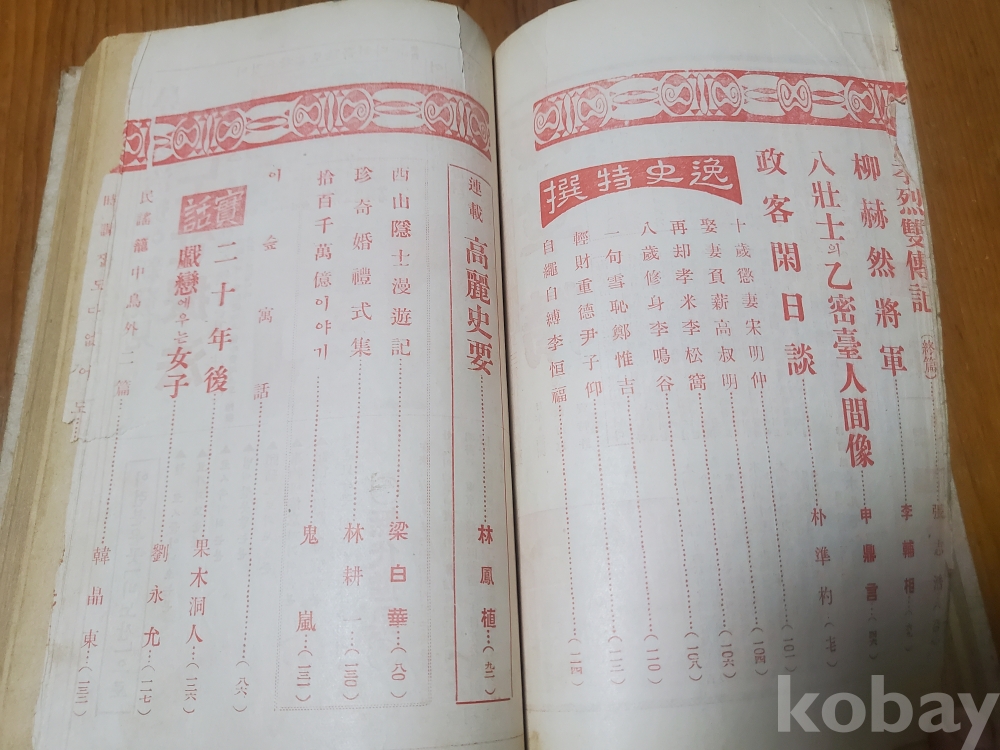 烈雙傳記 (終篇)
柳赫然將軍 李輔相
八壯士의乙密臺人間像 申鼎言
政客閑日談 朴準杓
逸史特撰
十歲懲妻宋明仲 (一〇一)
娶妻負薪高叔明 (一〇四)
再却孝米李松窩 (一〇六)
八歲修身李鳴谷 (一〇八)
一句雪恥鄭惟吉 (一一〇)
輕財重德尹子仰 (一一二)
自繩自縛李恒福 (一一四)
連載 高麗史要 林鳳植 (九二)
西山隱士漫遊記 梁白華 (八〇)
珍奇婚禮式集 林耕一 (一三〇)
拾百千萬億이야기 鬼嵐 (一三一)
이솝寓話 (八六)
實話 二十年後 果木洞人 (一二六)
戱戀에우는女子 劉永允 (一二七)
民謠籠中鳥外二篇 韓晶東 (一三二)
kobay